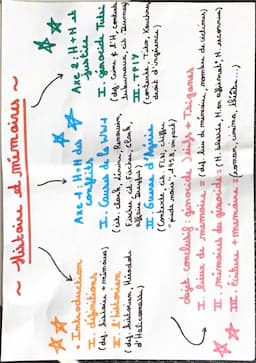 ~ Histoire et mémoires ~
• Introduction
I. définitions
(def histoire + mémoires)
II. l'historien
(def historien, Hérodote
d'Halicarnasse)
Axe 1 : H+M des
conflits
I. Causes de la WW1
(cit. clark, Renouvin,
Fischer, cit Fischer, Clark,
affaire Dreyfus)
II. Guerre d'Algérie
(Contexte, cit. FLN, chiffres
1998,
Axe 2 : H+M et
justice
I. génocide Tutsi
(def Crime c/ l'H, contexte
II. TPIY
(contexte, Tito,
droit d'ingérence)
objet conclusif : génocide Juifs + Tziganes
I. lieux de mémoire = (def lieu de mémoire, nombre de victimes)
II. mémoires du génocide = (M.
III. écriture + mémoire = (roman, cinéma, théât...)